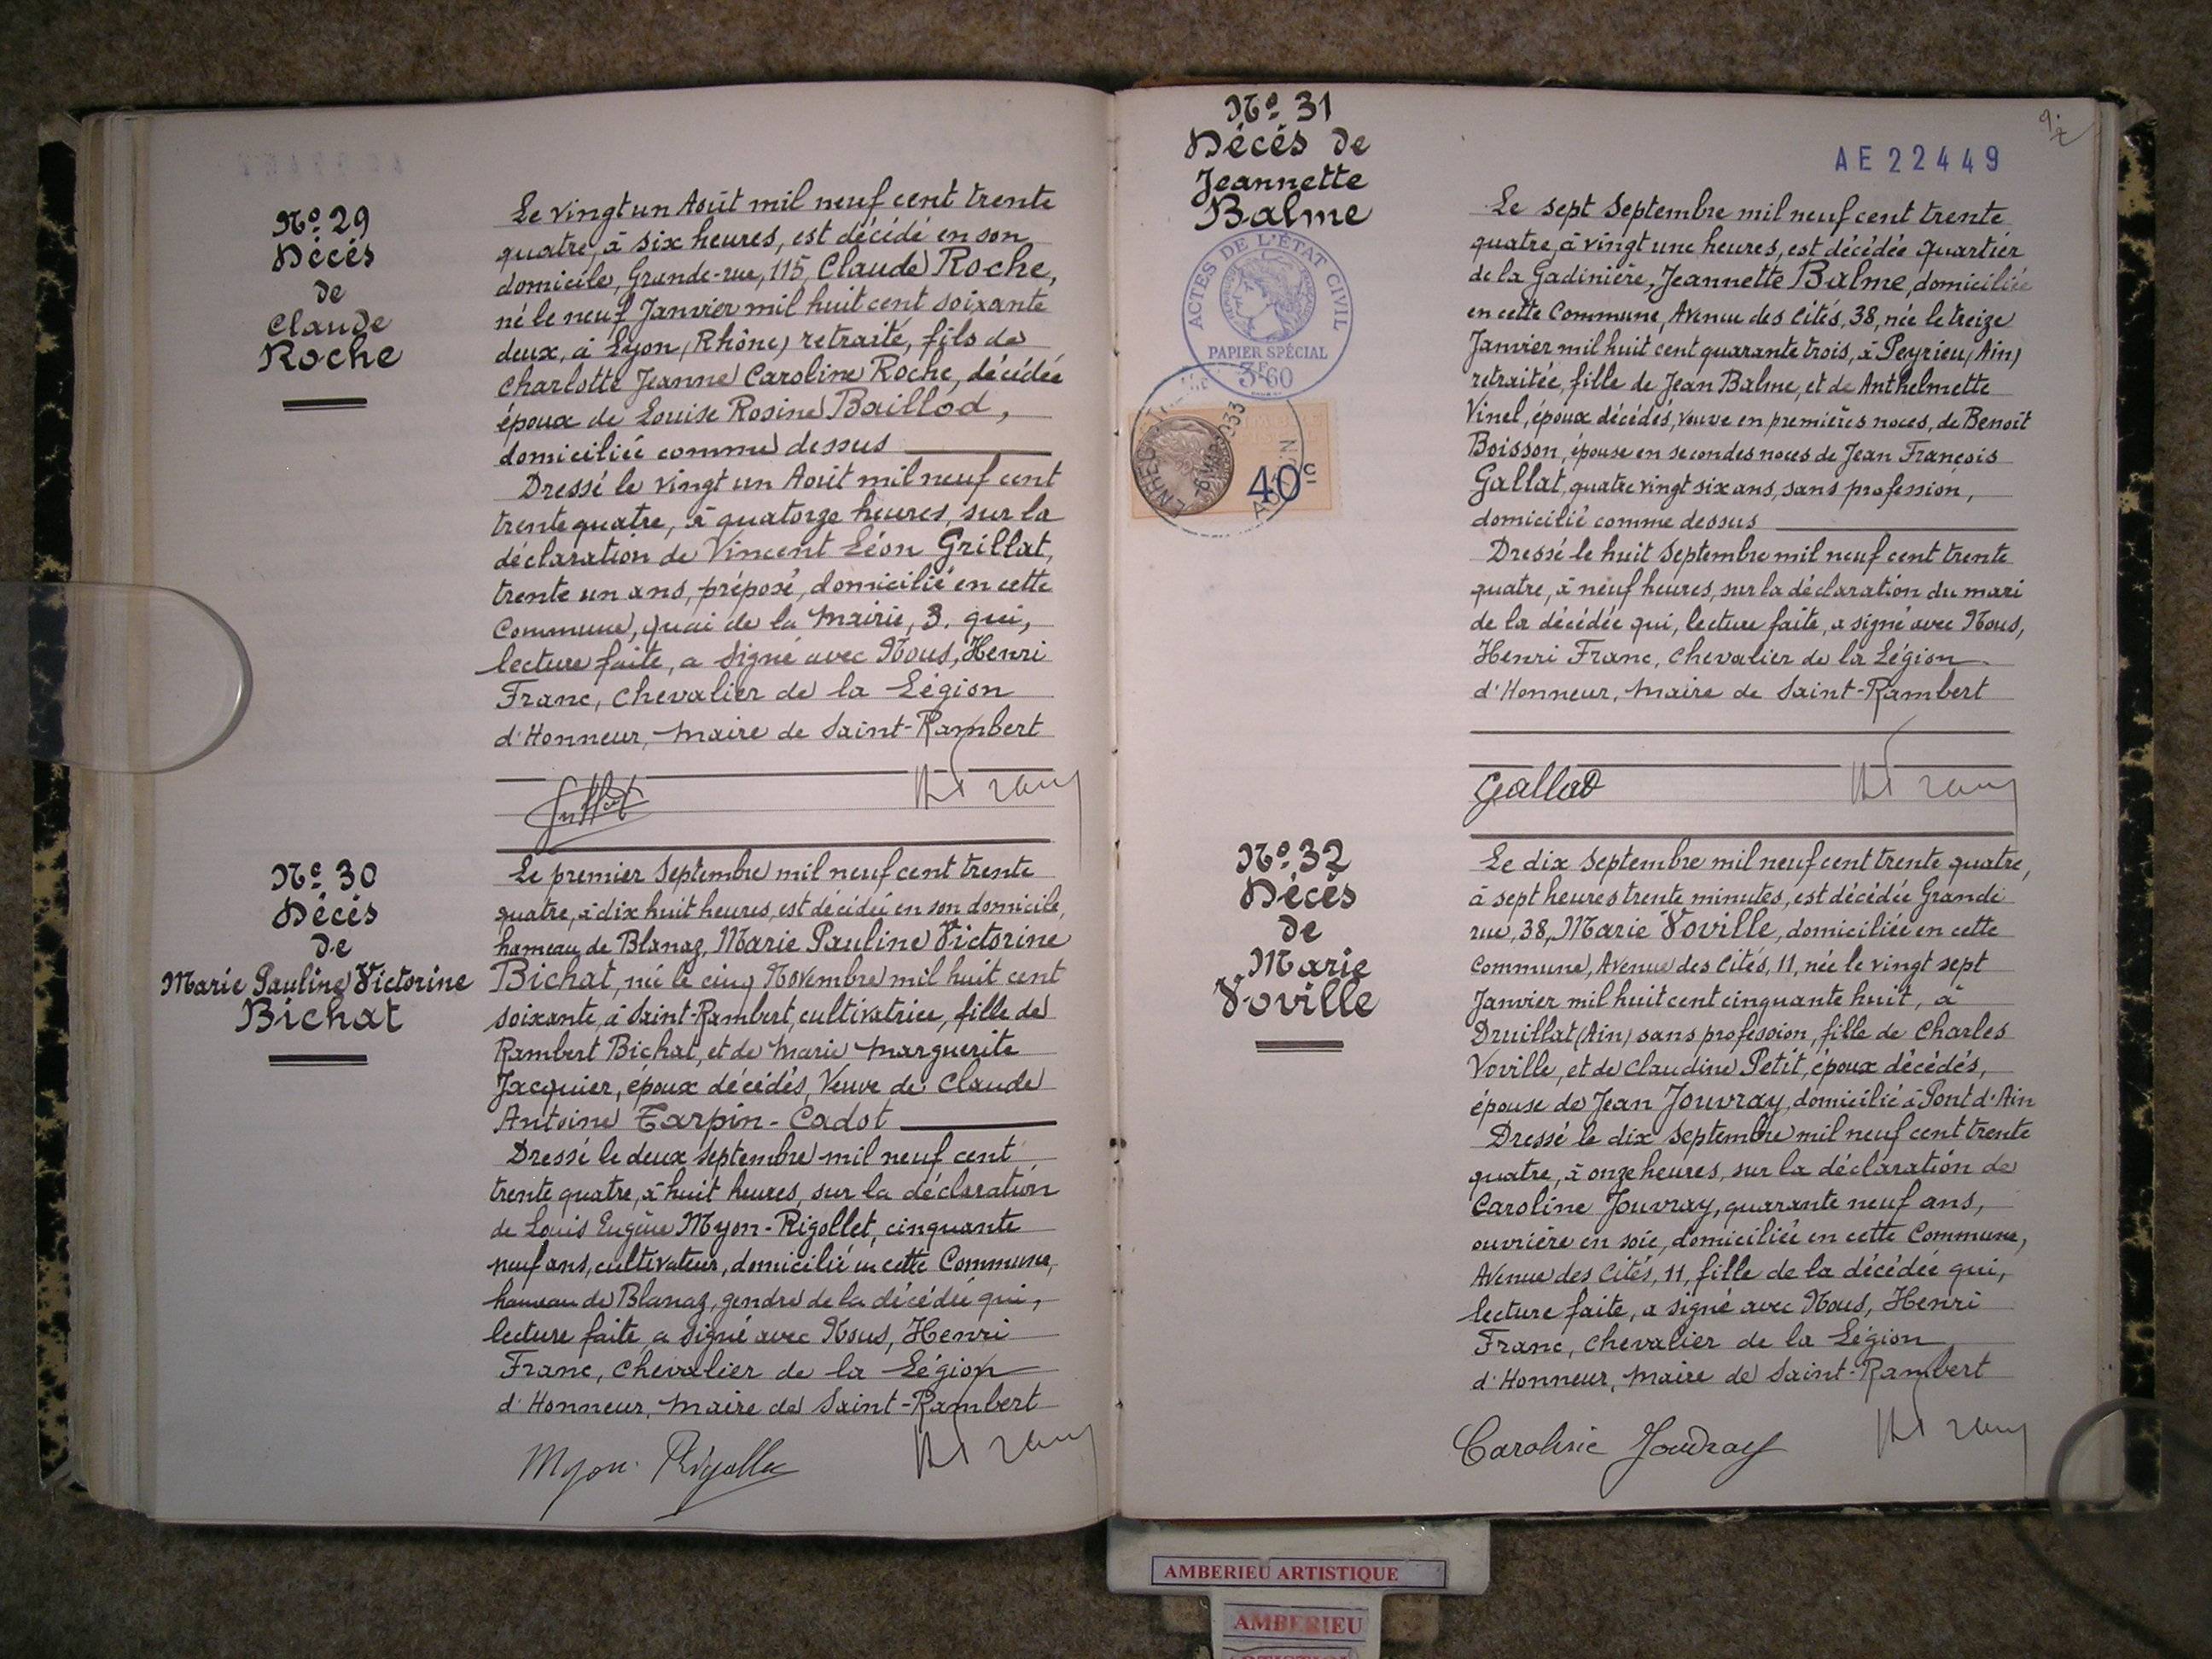 Nº 29
Décès
de
Claude
Roche
Le vingt un Août mil neuf cent trente
quatre, à six heures, est décédé en son
domicile, Grande-rue, 115, Claude Roche,
né le neuf Janvier mil huit cent soixante
deux, à Lyon, (Rhône) retraité, fils de
Charlotte Jeanne Caroline Roche, décédée
époux de Louise Rosine Baillod,
domiciliée comme dessus
Dressé le vingt un Août mil neuf cent
trente quatre, à quatorze heures, sur la
déclaration de Vincent Léon Grillat,
trente un ans, préposé, domicilié en cette
Commune, quai de la Mairie, 3, qui,
lecture faite, a signé avec Nous, Henri
Franc, Chevalier de la Légion
d'Honneur, Maire de Saint-Rambert
Nº 30
Décès
de
Marie Pauline Victorine
Bichat
Le premier Septembre mil neuf cent trente
quatre, à dix huit heures, est décédée en son domicile,
hameau de Blanaz, Marie Pauline Victorine
Bichat, née le cinq Novembre mil huit cent
soixante, à Saint-Rambert, cultivatrice, fille de
Rambert Bichat, et de Marie Marguerite
Jacquier, époux décédés, Veuve de Claude
Antoine Tarpin-Cadot
Dressé le deux Septembre mil neuf cent
trente quatre, à huit heures, sur la déclaration
de Louis Eugène Myon-Rigollet, cinquante
neuf ans, cultivateur, domicilié en cette Commune,
hameau de Blanaz, gendre de la décédée qui,
lecture faite, a signé avec Nous, Henri
Franc, Chevalier de la Légion
d'Honneur, Maire de Saint-Rambert
Myon Rigollet
Nº 31
Décès de
Jeannette
Balme
ACTES DE L'ÉTAT CIVIL
PAPIER SPÉCIAL
3F60
40c
AE 22449
Le sept Septembre mil neuf cent trente
quatre, à vingt une heures, est décédée quartier
de la Gadinière, Jeannette Balme, domiciliée
en cette Commune, Avenue des Cités, 38, née le treize
Janvier mil huit cent quarante trois, à Peyrieu, (Ain)
retraitée, fille de Jean Balme, et de Anthelmette
Vinel, époux décédés, veuve en premières noces, de Benoit
Boisson, épouse en secondes noces de Jean François
Gallat, quatre vingt six ans, sans profession,
domicilié comme dessus
Dressé le huit Septembre mil neuf cent trente
quatre, à neuf heures, sur la déclaration du mari
de la décédée qui, lecture faite, a signé avec Nous,
Henri Franc, Chevalier de la Légion
d'Honneur, Maire de Saint-Rambert
Gallat
Nº 32
Décès
de
Marie
Voville
Le dix Septembre mil neuf cent trente quatre,
à sept heures trente minutes, est décédée Grande
rue, 38, Marie Voville, domiciliée en cette
Commune, Avenue des Cités, 11, née le vingt sept
Janvier mil huit cent cinquante huit, à
Druillat (Ain) sans profession, fille de Charles
Voville, et de Claudine Petit, époux décédés,
épouse de Jean Jouvray, domicilié à Pont d'Ain
Dressé le dix Septembre mil neuf cent trente
quatre, à onze heures, sur la déclaration de
Caroline Jouvray, quarante neuf ans,
ouvrière en soie, domiciliée en cette Commune,
Avenue des Cités, 11, fille de la décédée qui,
lecture faite, a signé avec Nous, Henri
Franc, Chevalier de la Légion
d'Honneur, Maire de Saint-Rambert
Caroline Jouvray
AMBERIEU ARTISTIQUE
AMBERIEU
ARTISTIQUE